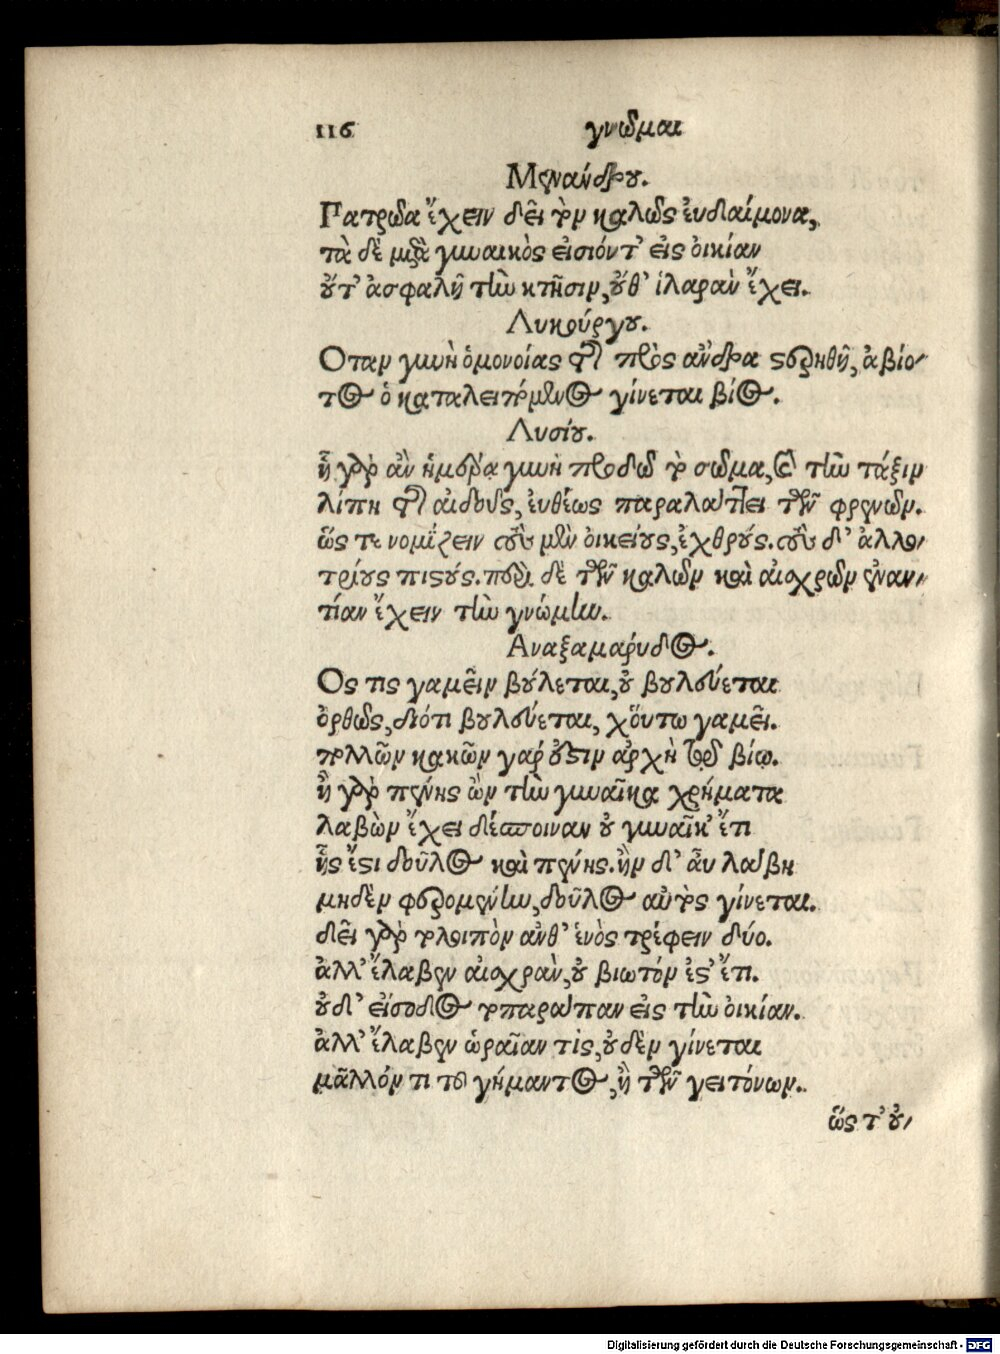 116 γνῶμαι
Μενάνδρου.
Πατρῶα ἔχειν δεῖ τὸν καλῶς ἐυδαίμονα,
τὰ δὲ μετὰ γυναικὸς ἐισιόντ' εἰς ὀικίαν
ὄυτ' ἀσφαλῆ τὴν κτῆσιν, ὄυθ' ἱλαρὰν ἔχει.
Λυκούργου.
Οταν γυνὴ ὁμονοίας τῆς πρὸς ἄνδρα στερηθῆ, ἀβίο-
τος ὁ καταλειπόμενος γίνεται βίος.
Λυσίου.
ἧ γὰρ ἂν ἡμέρα γυνὴ προδῶ τὸ σῶμα, καὶ τὴν τάξιν
λίπη τῆς αἰδοῦς, ἐυθέως παραλάττει τῶν φρενῶν.
ὥς τε νομίζειν τοὺς μὲν ὀικείους, ἐχθρούς. τοὺς δ' ἀλλο-
τρίους πιστούς. περὶ δὲ τῶν καλῶν καὶ αἰσχρῶν ἐναν-
τίαν ἔχειν τὴν γνώμην.
Αναξαμάρυδος.
Ος τις γαμεῖν βούλεται, ὀυ βουλεύεται
ὀρθῶς, διότι βουλεύεται, χὄυτω γαμεῖ.
πολλῶν κακῶν γάρ ὄυστιν ἀρχὴ τῷ βίῳ.
ἢ γὰρ πένης ὢν τὴν γυναῖκα χρήματα
λαβὼν ἔχει δέσποιναν ὀυ γυναῖκ' ἔτι
ἧς ἔστι δοῦλος καὶ πένης. ἢν δ' ἆυ λάβη
μηδὲν φερομένην, δοῦλος αὐτὸς γίνεται.
δεῖ γὰρ τολοιπὸν ἀνθ' ἑνὸς τρέφειν δύο.
ἀλλ' ἔλαβεν αἰσχρὰν, ὀυ βιωτόν ἐστ' ἔτι.
ὀυδ' εἴσοδος τοπαράπαν εἰς τὴν ὀικίαν.
ἀλλ' ἔλαβεν ὡραῖαν τὶς, ὀυδὲν γίνεται
μᾶλλόν τι τοῦ γήμαντος, ἢ τῶν γειτόνων.
ὥς τ' ὀυ-
Digitalisierung gefördert durch die Deutsche Forschungsgemeinschaft - DFG